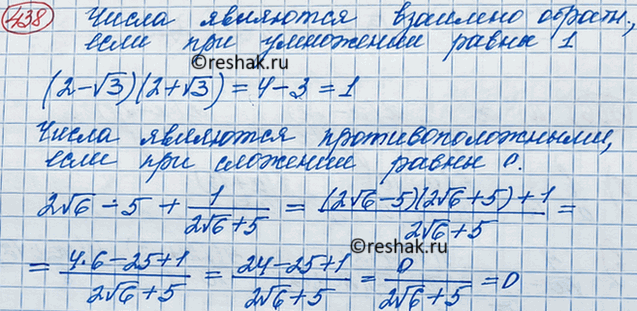 438 Числа являются взаимно обратн.,
если при умножении равны 1
(2-√3)(2+√3) = 4-3 = 1
Числа являются противоположными,
если при сложении равны 0.
2√6 - 5 + 1/(2√6+5) = ((2√6-5)(2√6+5)+1)/(2√6+5) =
©reshak.ru
= (4·6-25+1)/(2√6+5) = (24-25+1)/(2√6+5) = 0/(2√6+5) = 0
©reshak.ru